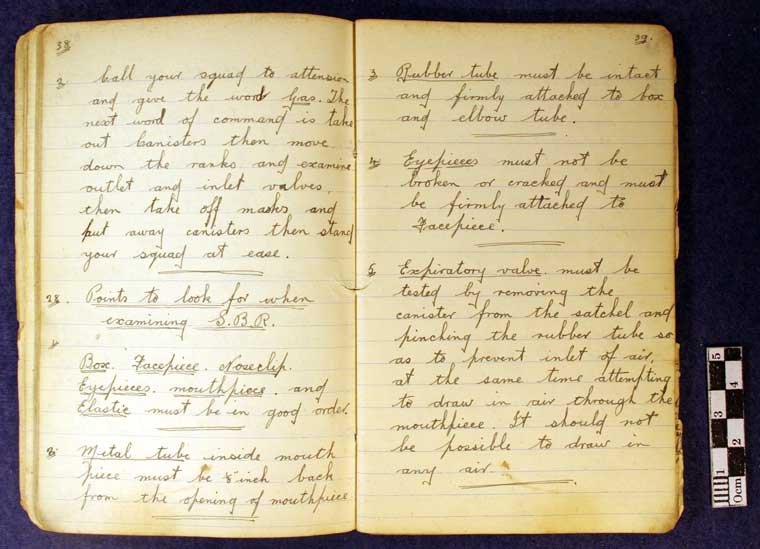 38
3 Call your squad to attension
and give the word Gas. The
next word of command is take
out Canisters then move
down the ranks and examine
outlet and inlet valves,
then take off masks and
put away canisters then stand
your squad at ease.
28. Points to look for when
examining S.B.R.
1
Box. Facepiece. Noseclip.
Eyepieces. mouthpiece. and
Elastic must be in good order.
2 Metal tube inside mouth
piece must be ⅛" inch back
from the opening of mouthpiece
39.
3 Rubber tube must be intact
and firmly attached to box
and elbow tube.
4 Eyepieces must not be
broken or cracked and must
be firmly attached to
Facepiece.
5 Expiratory valve. must be
tested by removing the
canister from the satchel and
pinching the rubber tube so
as to prevent inlet of air,
at the same time attempting
to draw in air through the
mouthpiece. It should not
be possible to draw in
any air.
5
4
3
2
1
0cm